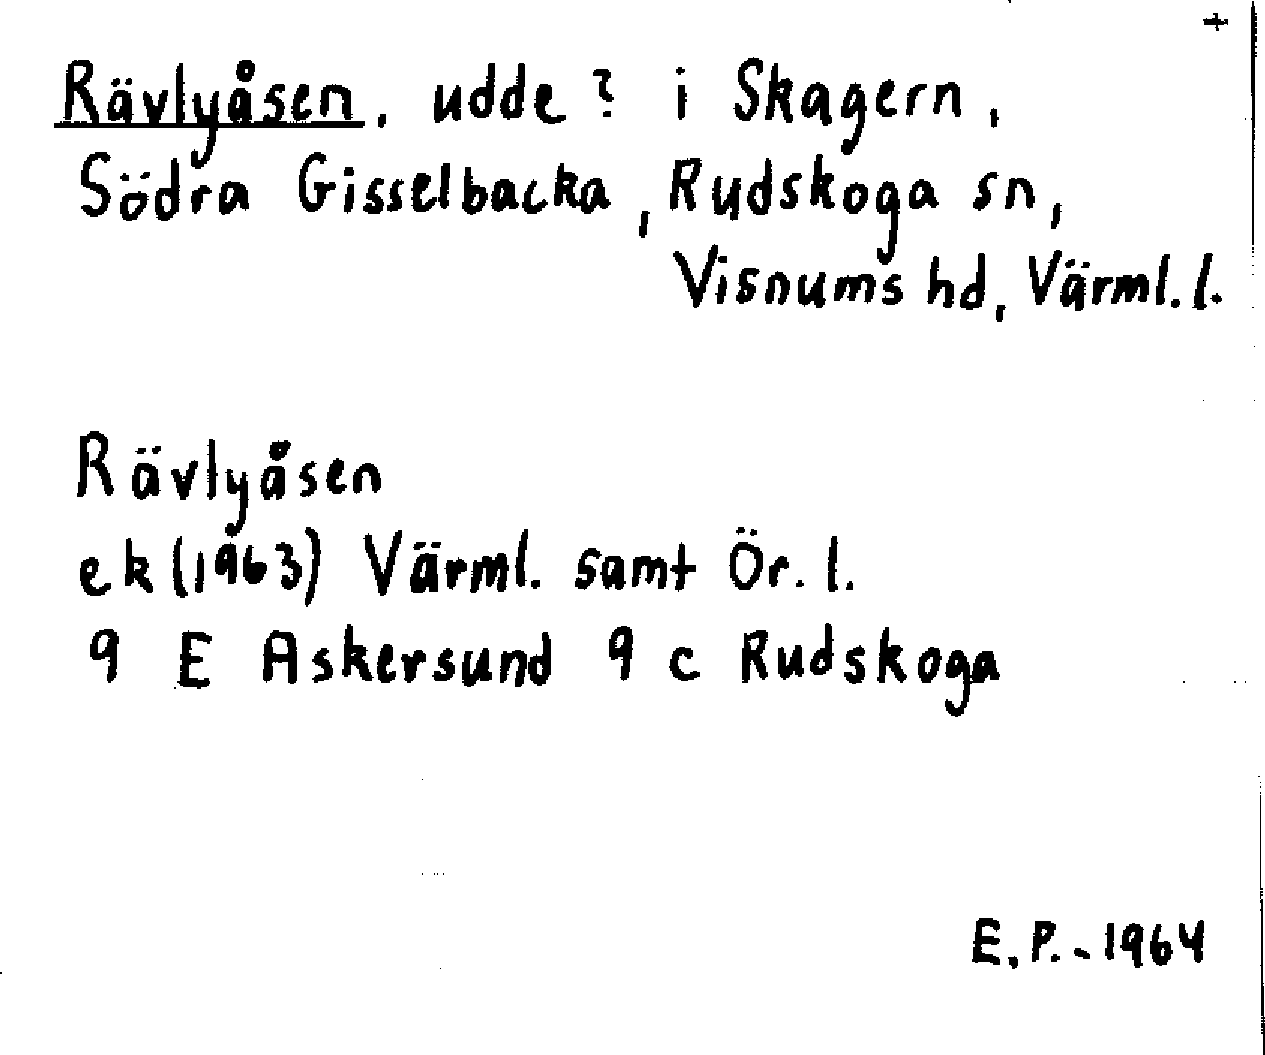 +
Rävlyåsen, udde? i Skagern,
Södra Gisselbacka, Rudskoga sn,
Visnums hd, Värml. l.
Rävlyåsen
ek (1963) Värml. samt Ör. l.
9 E Askersund 9 c Rudskoga
E. P. - 1964